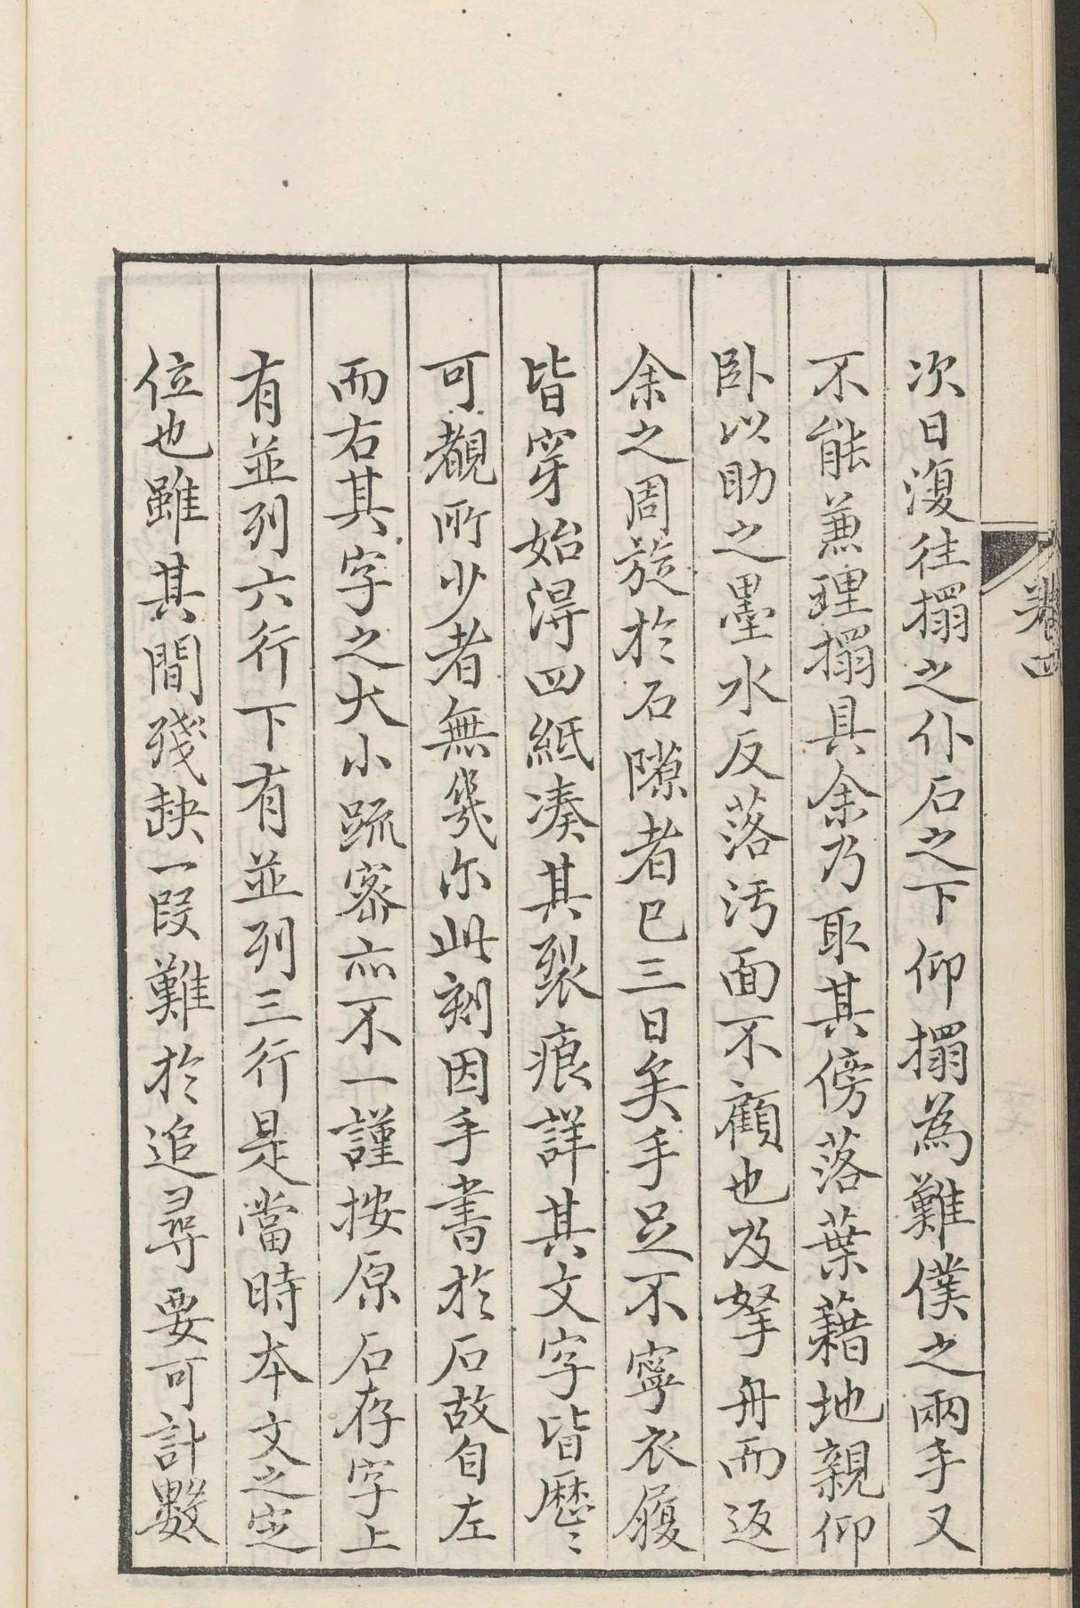 卷四
次日復往搨之仆石之下仰搨為難僕之兩手又
不能兼理搨具余乃取其傍落葉藉地親仰
臥以助之墨水反落汚面不顧也及拏舟而返
余之周旋於石隙者已三日矣手足不寧衣履
皆穿始得四紙湊其裂痕詳其文字皆歷〻
可覩所少者無幾尒此刻因手書於石故自左
而右其字之大小疏密亦不一謹按原石存字上
有並列六行下有並列三行是當時本文之定
位也雖其間殘缺一段難於追尋要可計數